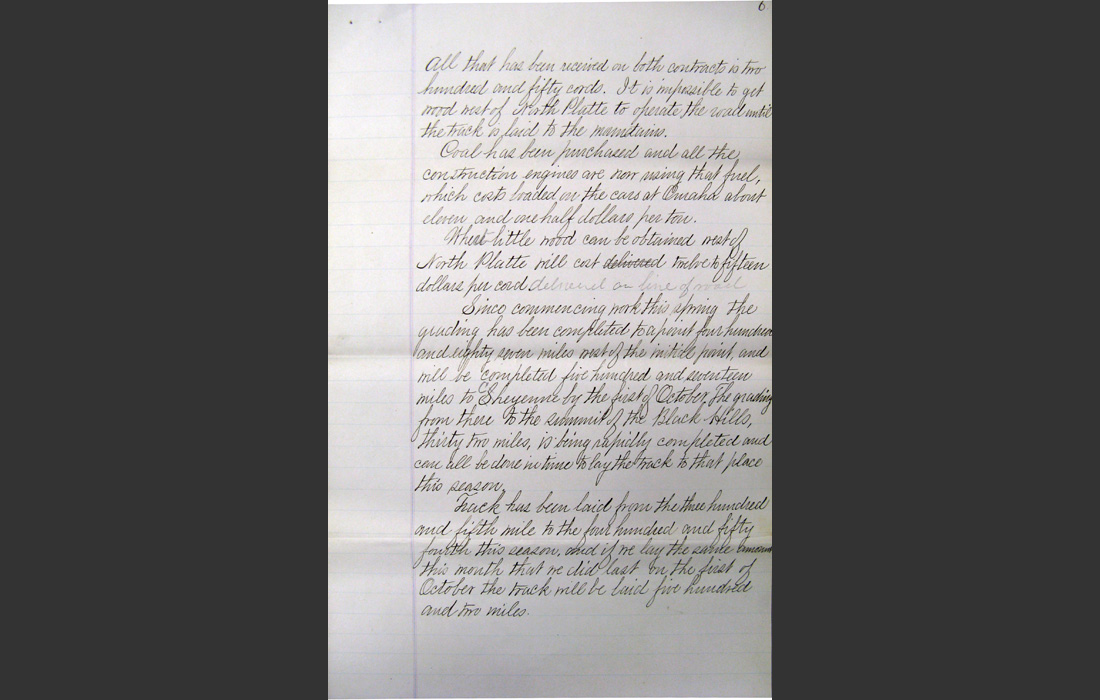 6
All that has been received on both contracts is two
hundred and fifty cords. It is impossible to get
wood west of North Platte to operate the road until
the track is laid to the mountains.
Coal has been purchased and all the
construction engines are now using that fuel,
which costs loaded on the cars at Omaha about
eleven and one half dollars per ton.
What little wood can be obtained west of
North Platte will cost delivered twelve to fifteen
dollars per cord delivered on line of road
Since commencing work this spring the
grading has been completed to a point four hundred
and eighty seven miles west of the initial point, and
will be completed five hundred and seventeen
miles to Cheyenne by the first of October. The grading
from there to the summit of the Black Hills,
thirty two miles, is being rapidly completed and
can all be done in time to lay the track to that place
this season.
Track has been laid from the three hundred
and fifth mile to the four hundred and fifty
fourth this season, and if we lay the same amount
this month that we did last on the first of
October the track will be laid five hundred
and two miles.